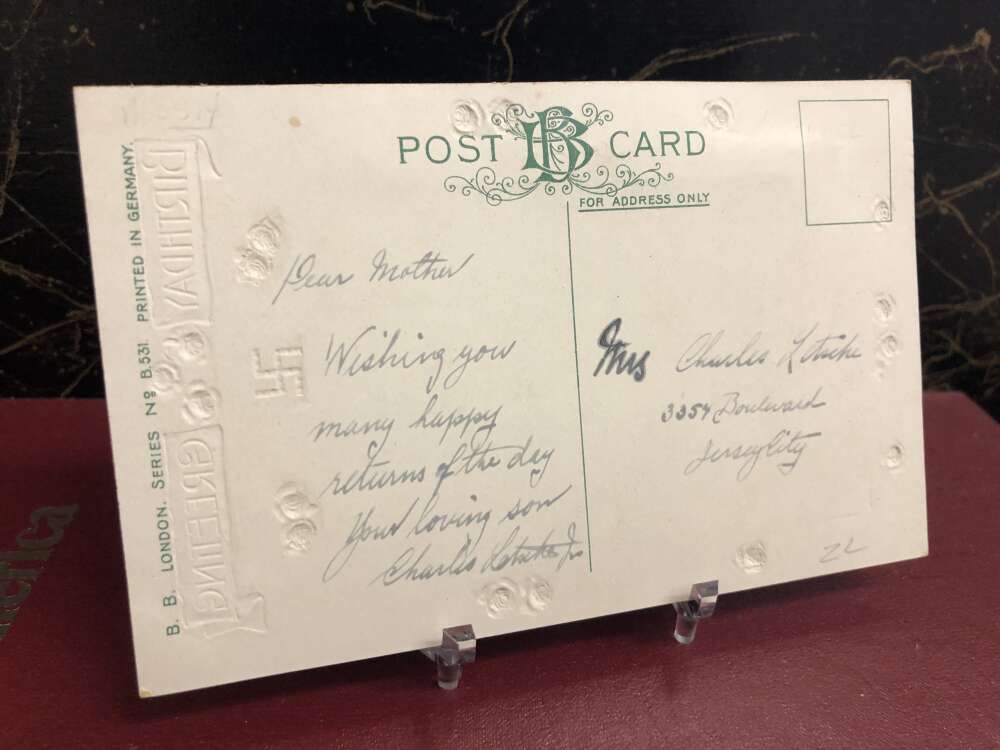 POST BB CARD
FOR ADDRESS ONLY
B. B. LONDON. SERIES Nº B.531. PRINTED IN GERMANY.
BIRTHDAY
GREETING
Dear Mother
Wishing you
many happy
returns of the day
Your loving son
Charles Jr
Mrs Charles
3354 Boulevard
Jersey City